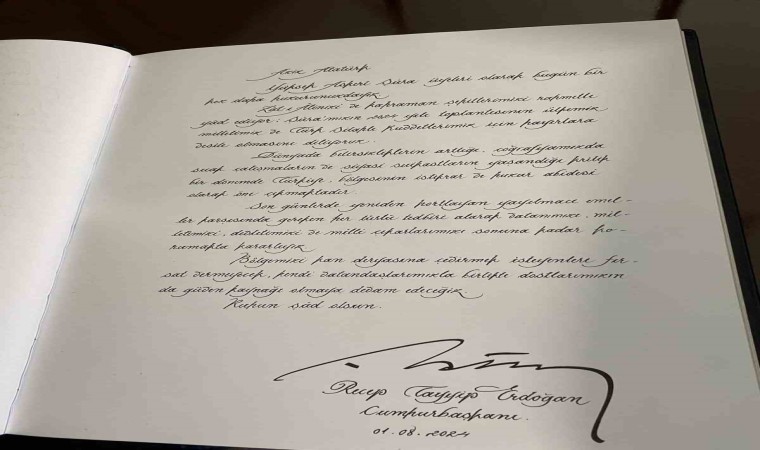 Aziz Atatürk
Yüksek Askeri Şûra üyeleri olarak bugün bir
kez daha huzurunuzdayız.
Zat-ı Âlinizi ve kahraman şehitlerimizi rahmetle
yâd ediyor; Şûra'mızın 2024 yılı toplantısının ülkemiz,
milletimiz ve Türk Silahlı Kuvvetlerimiz için hayırlara
vesile olmasını diliyoruz.
Dünyada belirsizliklerin arttığı, coğrafyamızda
sıcak çatışmaların ve siyasi suikastların yaşandığı kritik
bir dönemde Türkiye, bölgesinin istikrar ve huzur abidesi
olarak öne çıkmaktadır.
Son günlerde yeniden hortlayan yayılmacı emel-
ler karşısında gereken her türlü tedbiri alarak vatanımızı, mil-
letimizi, devletimizi ve milli çıkarlarımızı sonuna kadar ko-
rumakta kararlıyız.
Bölgemizi kan deryasına çevirmek isteyenlere fır-
sat vermeyecek, kendi vatandaşlarımızla birlikte dostlarımızın
da güven kaynağı olmaya devam edeceğiz.
Ruhun şâd olsun.
Recep Tayyip Erdoğan
Cumhurbaşkanı
01.08.2024